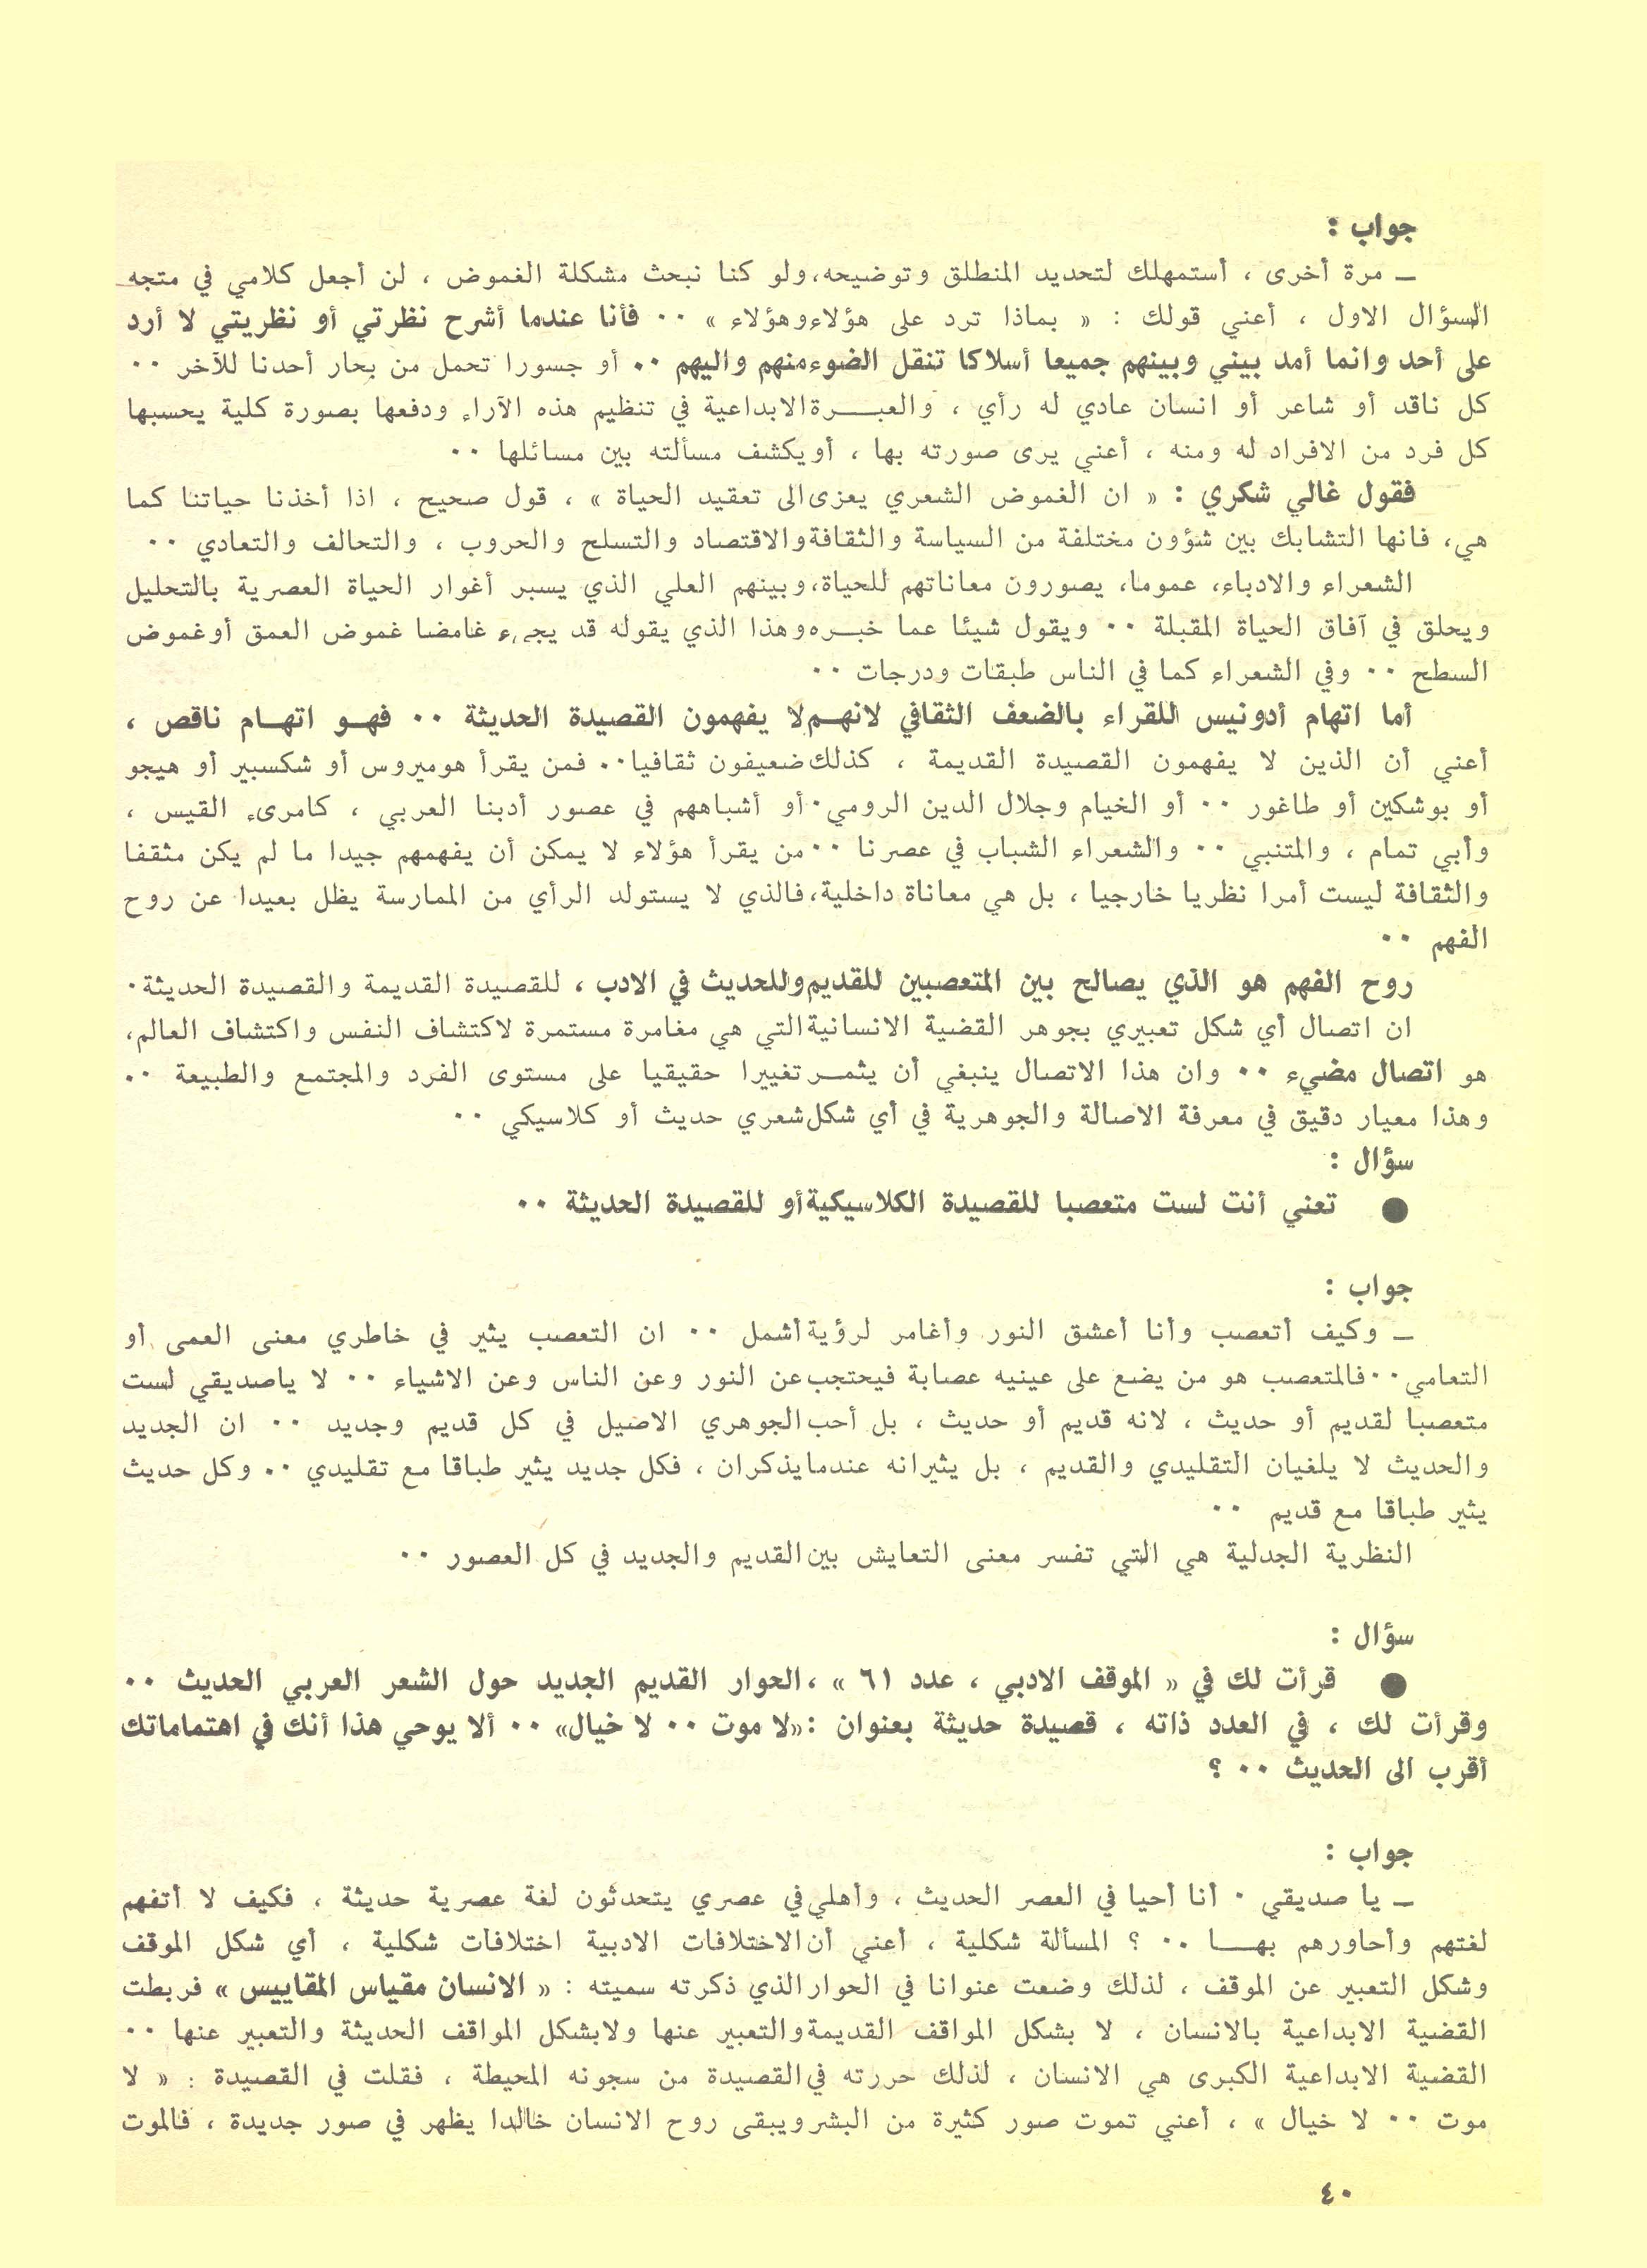 جواب :
ـ مرة أخرى ، أستمهلك لتحديد المنطلق وتوضيحه، ولو كنا نبحث مشكلة الغموض ، لن أجعل كلامي في متجه
السؤال الاول ، أعني قولك : « بماذا ترد على هؤلاء وهؤلاء » ٠٠ فأنا عندما أشرح نظرتي أو نظريتي لا أرد
على أحد وانما أمد بيني وبينهم جميعا أسلاكا تنقل الضوء منهم واليهم ٠٠ أو جسورا تحمل من بحار أحدنا للآخر ٠٠
كل ناقد أو شاعر أو انسان عادي له رأي ، والعبـــرة الابداعية في تنظيم هذه الآراء ودفعها بصورة كلية يحسبها
كل فرد من الافراد له ومنه ، أعني يرى صورته بها ، أو يكشف مسألته بين مسائلها ٠٠
فقول غالي شكري : « ان الغموض الشعري يعزى الى تعقيد الحياة » ، قول صحيح ، اذا أخذنا حياتنا كما
هي، فانها التشابك بين شؤون مختلفة من السياسة والثقافة والاقتصاد والتسلح والحروب ، والتحالف والتعادي ٠٠
الشعراء والادباء، عموما، يصورون معاناتهم للحياة، وبينهم العلي الذي يسبر أغوار الحياة العصرية بالتحليل
ويحلق في آفاق الحياة المقبلة ٠٠ ويقول شيئا عما خبـــره وهذا الذي يقوله قد يجيء غامضا غموض العمق أو غموض
السطح ٠٠ وفي الشعراء كما في الناس طبقات ودرجات ٠٠
أما اتهام أدونيس للقراء بالضعف الثقافي لانهـم لا يفهمون القصيدة الحديثة ٠٠ فهـو اتهـام ناقص ،
أعني أن الذين لا يفهمون القصيدة القديمة ، كذلك ضعيفون ثقافيا ٠٠ فمن يقرأ هوميروس أو شكسبير أو هيجو
أو بوشكين أو طاغور ٠٠ أو الخيام وجلال الدين الرومي ٠ أو أشباههم في عصور أدبنا العربي ، كامرىء القيس ،
وأبي تمام ، والمتنبي ٠٠ والشعراء الشباب في عصرنا ٠٠ من يقرأ هؤلاء لا يمكن أن يفهمهم جيدا ما لم يكن مثقفا
والثقافة ليست أمرا نظريا خارجيا ، بل هي معاناة داخلية، فالذي لا يستولد الرأي من الممارسة يظل بعيدا عن روح
الفهم ٠٠
روح الفهم هو الذي يصالح بين المتعصبين للقديم وللحديث في الادب ، للقصيدة القديمة والقصيدة الحديثة ٠
ان اتصال أي شكل تعبيري بجوهر القضية الانسانية التي هي مغامرة مستمرة لاكتشاف النفس واكتشاف العالم،
هو اتصال مضيء ٠٠ وان هذا الاتصال ينبغي أن يثمـر تغييرا حقيقيا على مستوى الفرد والمجتمع والطبيعة ٠٠
وهذا معيار دقيق في معرفة الاصالة والجوهرية في أي شكل شعري حديث أو كلاسيكي ٠٠
سؤال :
● تعني أنت لست متعصبا للقصيدة الكلاسيكية أو للقصيدة الحديثة ٠٠
جواب :
ـ وكيف أتعصب وأنا أعشق النور وأغامر لرؤية أشمل ٠٠ ان التعصب يثير في خاطري معنى العمى أو
التعامي ٠٠ فالمتعصب هو من يضع على عينيه عصابة فيحتجب عن النور وعن الناس وعن الاشياء ٠٠ لا ياصديقي لست
متعصبا لقديم أو حديث ، لانه قديم أو حديث ، بل أحب الجوهري الاصيل في كل قديم وجديد ٠٠ ان الجديد
والحديث لا يلغيان التقليدي والقديم ، بل يثيرانه عندما يذكران ، فكل جديد يثير طباقا مع تقليدي ٠٠ وكل حديث
يثير طباقا مع قديم ٠٠
النظرية الجدلية هي التي تفسر معنى التعايش بين القديم والجديد في كل العصور ٠٠
سؤال :
● قرأت لك في « الموقف الادبي ، عدد ٦١ » ، الحوار القديم الجديد حول الشعر العربي الحديث ٠٠
وقرأت لك ، في العدد ذاته ، قصيدة حديثة بعنوان : «لا موت ٠٠ لا خيال» ٠٠ ألا يوحي هذا أنك في اهتماماتك
أقرب الى الحديث ٠٠ ؟
جواب :
ـ يا صديقي ٠ أنا أحيا في العصر الحديث ، وأهلي في عصري يتحدثون لغة عصرية حديثة ، فكيف لا أتفهم
لغتهم وأحاورهم بهـــا ٠٠ ؟ المسألة شكلية ، أعني أن الاختلافات الادبية اختلافات شكلية ، أي شكل الموقف
وشكل التعبير عن الموقف ، لذلك وضعت عنوانا في الحوار الذي ذكرته سميته : « الانسان مقياس المقاييس » فربطت
القضية الابداعية بالانسان ، لا بشكل المواقف القديمة والتعبير عنها ولا بشكل المواقف الحديثة والتعبير عنها ٠٠
القضية الابداعية الكبرى هي الانسان ، لذلك حررته في القصيدة من سجونه المحيطة ، فقلت في القصيدة : « لا
موت ٠٠ لا خيال » ، أعني تموت صور كثيرة من البشر ويبقى روح الانسان خالدا يظهر في صور جديدة ، فالموت
٤٠